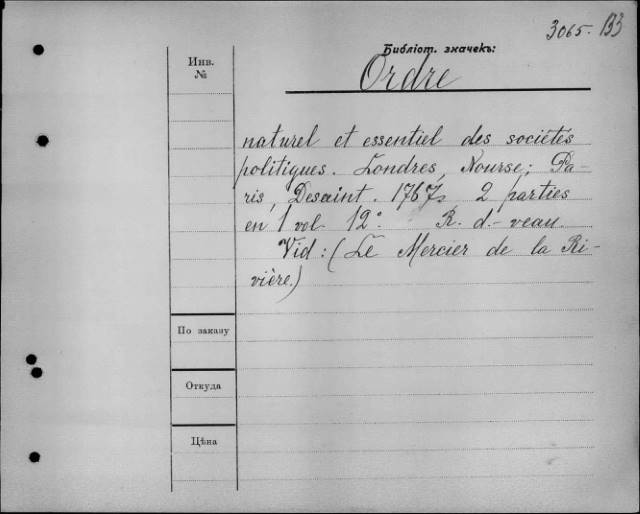 3065. B3
Библіот. значекъ:
Инв.
№
Ordre
naturel et essentiel des sociétés
politiques. Londres, Nourse; Pa-
ris, Desaint. 1767, 2 parties
en 1 vol. 12°. R. d-veau.
Vid: (Le Mercier de la Ri-
vière.)
По заказу
Откуда
Цѣна